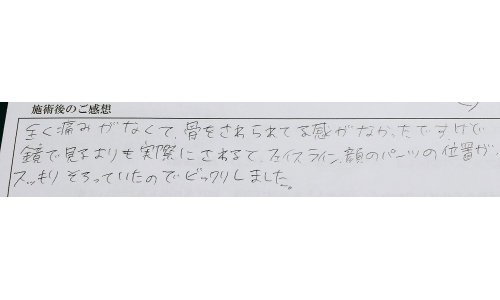 施術後のご感想
全く痛みがなくて、骨をさわられてる感がなかったですけど
鏡で見るよりも実際にさわると、フェイスライン、顔のパーツの位置が、
スッキリそろっていたのでビックリしました。